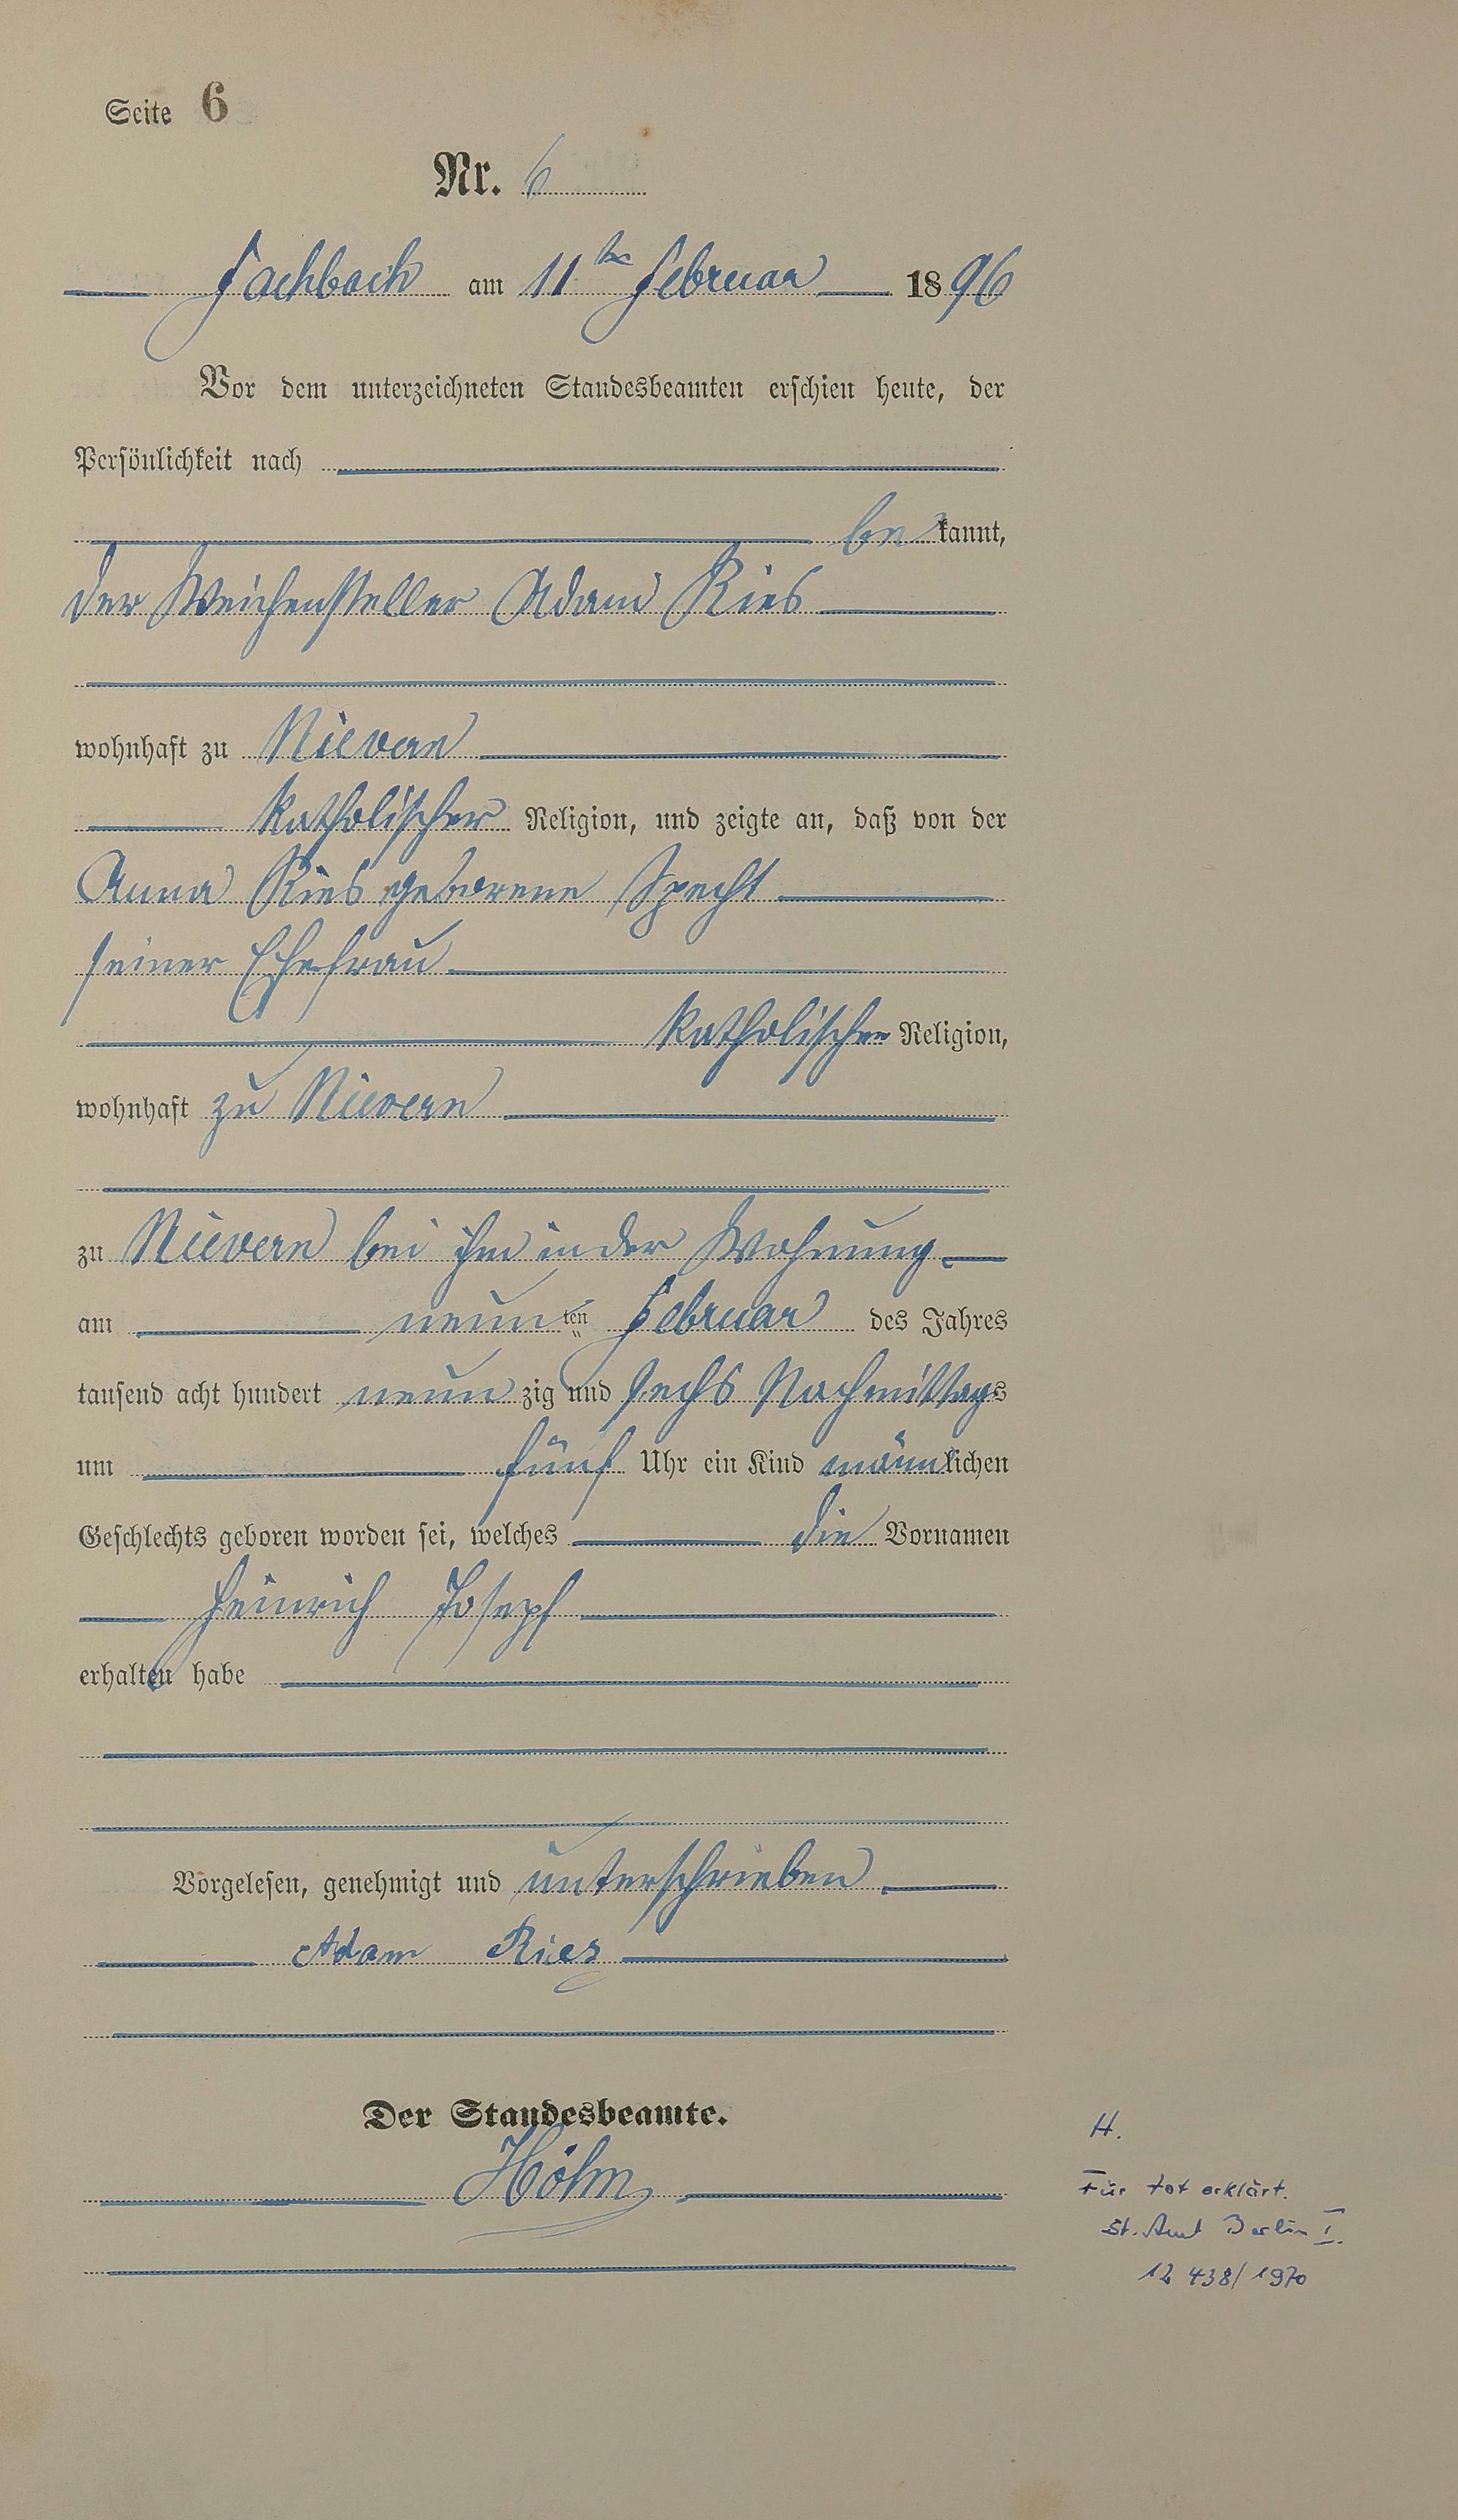 Seite 6
Nr. 6
Fachbach am 11ten Februar 1896
Vor dem unterzeichneten Standesbeamten erschien heute, der
Persönlichkeit nach
bekannt,
der Weichensteller Adam Ries
wohnhaft zu Nievern
katholischer Religion, und zeigte an, daß von der
Anna Ries geborene Specht
seiner Ehefrau
katholischer Religion,
wohnhaft zu Nievern
zu Nievern bei ihm in der Wohnung
am neunten Februar des Jahres
tausend acht hundert neunzig und sechs Nachmittags
um fünf Uhr ein Kind männlichen
Geschlechts geboren worden sei, welches die Vornamen
Heinrich Joseph
erhalten habe
Vorgelesen, genehmigt und unterschrieben
Adam Ries
Der Standesbeamte.
Höhn
H.
Für tot erklärt.
St. Amt Berlin I.
12 438/1970